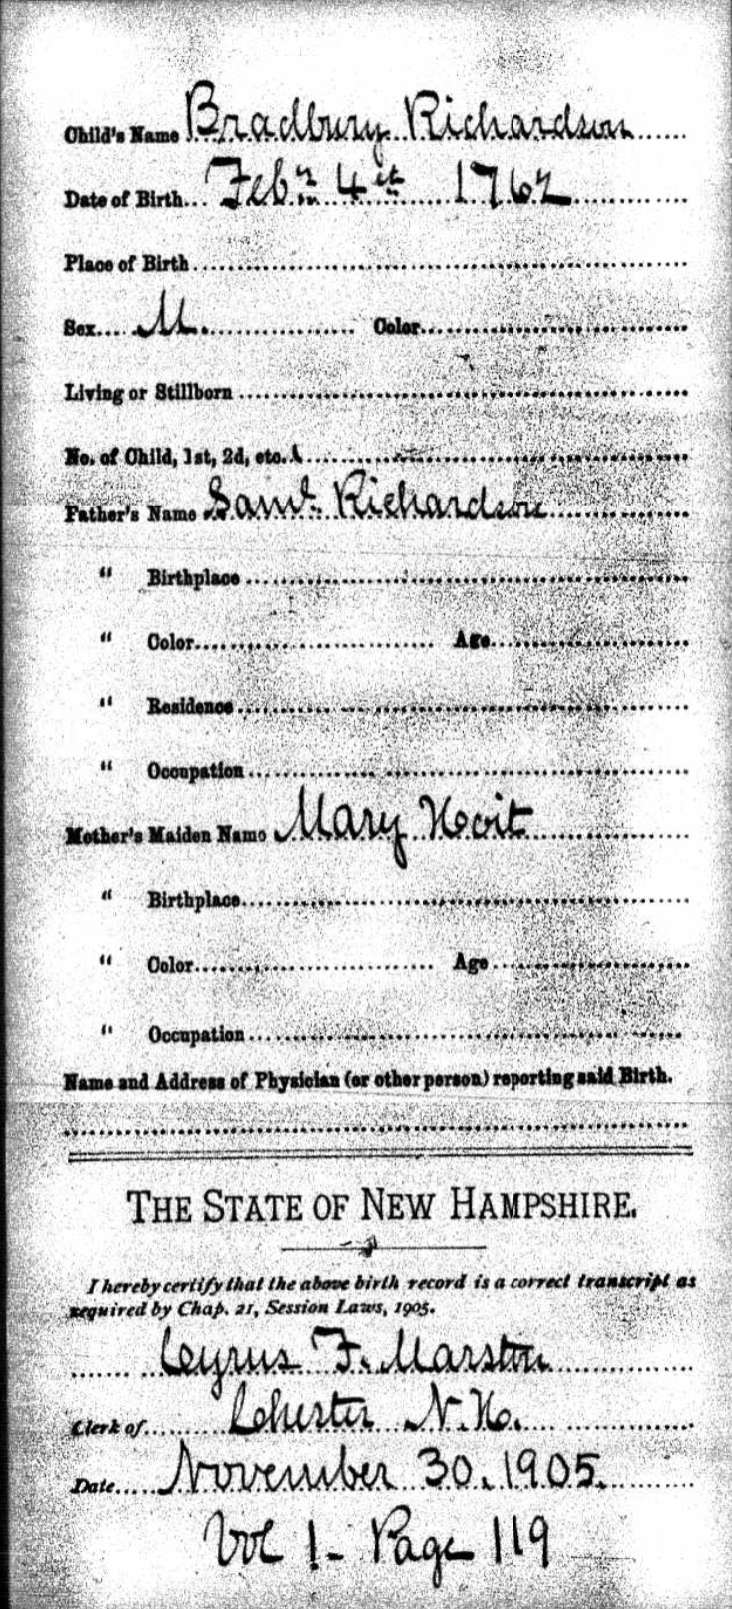 Child's Name Bradbury Richardson
Date of Birth Feby 4th 1762
Place of Birth
Sex M. Color
Living or Stillborn
No. of Child, 1st, 2d, etc.
Father's Name Saml. Richardson
" Birthplace
" Color Age
" Residence
" Occupation
Mother's Maiden Name Mary Hoit
" Birthplace
" Color Age
" Occupation
Name and Address of Physician (or other person) reporting said Birth.
THE STATE OF NEW HAMPSHIRE.
I hereby certify that the above birth record is a correct transcript as
required by Chap. 21, Session Laws, 1905.
Cyrus F. Marston
Clerk of Chester N.H.
Date November 30, 1905.
Vol 1 - Page 119